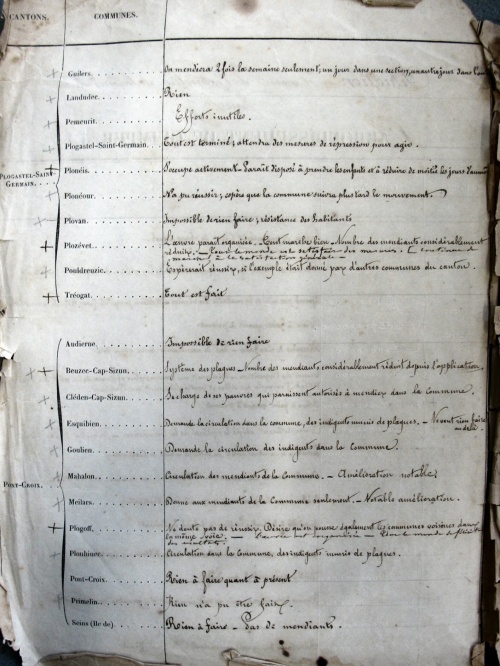 CANTONS. COMMUNES.
Guilers. On mendiera 2 fois la semaine seulement; un jour dans une section, un autre jour dans l'au
Landudec. Rien
Pemeurit. Efforts inutiles.
Plogastel-Saint-Germain. Tout est terminé; attendre des mesures de répression pour agir.
PLOGASTEL-SAINT-GERMAIN.
Plonéis. S'occupe activement. Paraît disposé à prendre les enfants et à réduire de moitié les jours d'aumône
Plonéour. N'a pu réussir; espère que la commune suivra plus tard le mouvement.
Plovan. Impossible de rien faire; résistance des habitants
Plozévet. L'œuvre paraît organisée. Tout marche bien. Nombre des mendiants considérablement
réduix. — Tout le monde est satisfait des mesures.
à la satisfaction générale —
Pouldreuzic. Espérerait réussir, si l'exemple était donné par d'autres communes du canton.
Tréogat. Tout est fait
Audierne. Impossible de rien faire
Beuzec-Cap-Sizun. Système des plaques. Nombre des mendiants considérablement réduit depuis l'application.
Cléden-Cap-Sizun. Se charge de ses pauvres qui paraissent autorisés à mendier dans la Commune.
Esquibien. Demande la circulation dans la commune, des indigents munis de plaques. — Ne veut rien faire
au delà.
Goulien. Demande la circulation des indigents dans la Commune.
PONT-CROIX.
Mahalon. Circulation des mendiants de la Commune. — Amélioration notable.
Meilars. Donne aux mendiants de la Commune seulement. — Notable amélioration.
Plogoff. Ne doute pas de réussir. Désire qu'on pousse également les communes voisines dans
la même voie. — — Tout le monde
Plouhinec. Circulation dans la Commune, des indigents munis de plaques.
Pont-Croix. Rien à faire quant à présent
Primelin. Rien n'a pu être fait.
Seins (Ile de). Rien à faire — Pas de mendiants.